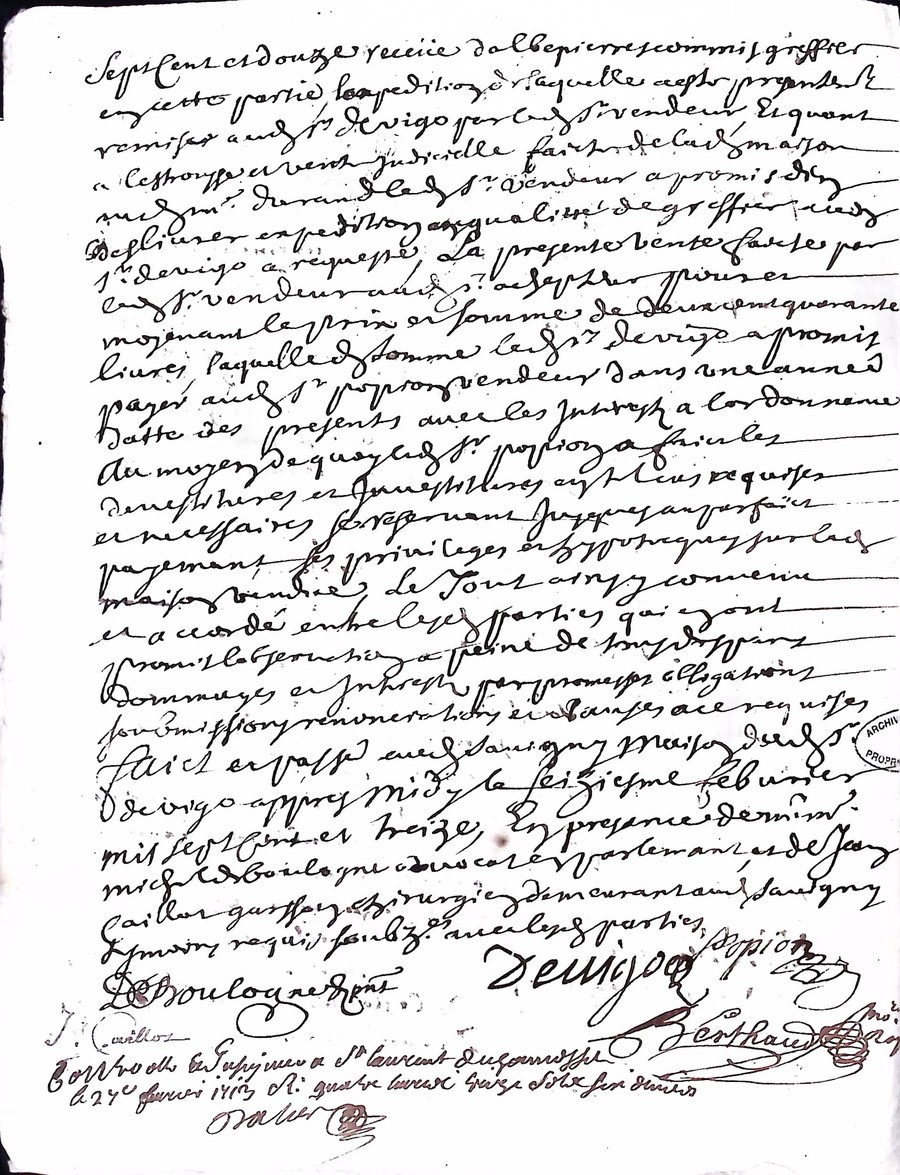 Sept Cent et douze receüe dalbepierre commis greffier
en cette partie lexpedition de laquelle a este presentemt
remise aud Sr. Devigo par led Sr vendeur, Et quant
a lestrousse et vente Judicielle faicte de lad maison
aud mr. durand led Sr. vendeur a promis den
deslivrer expedition en qualitté de greffier aud
Sr. devigo a requeste, La presente vente faicte par
led Sr. vendeur aud Sr. achepteur pour et
moyenant le prix et somme de deux cent quarante
livres laquelle d somme led Sr. Devigo a promit
payer aud Sr popion vendeur dans une année
datte des presents avec les Interests a lordonnance
Au moyen de quoy led Sr. popion a faict les
devestitures et Investitures en tel cas requises
et necessaires se reservant Jusques au parfaict
payement ses privileges et hypoteques sur lad
maison vendue, Le Tout ainsy convenu
et accordé entre lesd parties qui en ont
promit lobservation a peine de tous despans
dommages et Interests par promesses obligations
soubmissions renonciations et clauses a ce requises
faict et passé aud Sauvigny Maison dud Sr.
Devigo appres Midy le seiziesme febvrier
mil sept Cent et treize, En presance de mr.
michel deboulogne advocat en parlement, et de Jean
Caillot garsson chirurgien demeurant aud Sauvigny
tesmoins requis soubz.es avec lesd parties,
Devigo Popion
DeBoulogne pnt
J. Caillot
Berthaud no.re Roy
Controolle et Insinué a St laurent
le 27e fevrier 1713 R: quatre livres treize sols six deniers
ARCHIV
PROPR